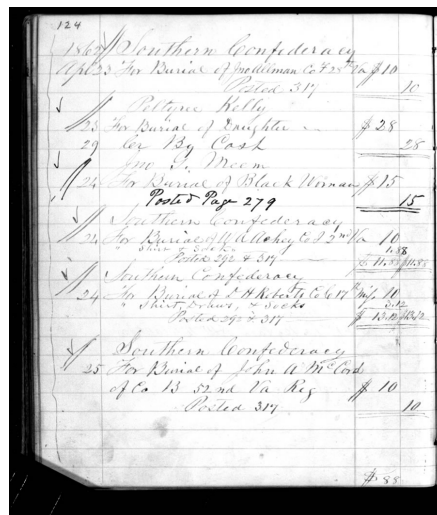 124
1862 Southern Confederacy
Apl 23 For Burial of Jno Delman Co F 28th Va $10
Posted 317 10
Pettyree Kelly
23 For Burial of Daughter $28
29 Cr By Cash 28
Jno G. Meem
24 For Burial of Black Woman $15
Posted Page 279 15
Southern Confederacy
24 For Burial of W A Ashey Co I 2nd Va 10
Shirt & Socks 1.88
Posted 292 & 317 $11.88 $11.88
Southern Confederacy
24 For Burial of J H Roberts Co C 17th Miss 10
" Shirt Drawers, & Socks 3.12
Posted 292 & 317 $13.12 $13.12
Southern Confederacy
25 For Burial of John A McCord
of Co B 52nd Va Reg $10
Posted 317 10
$88